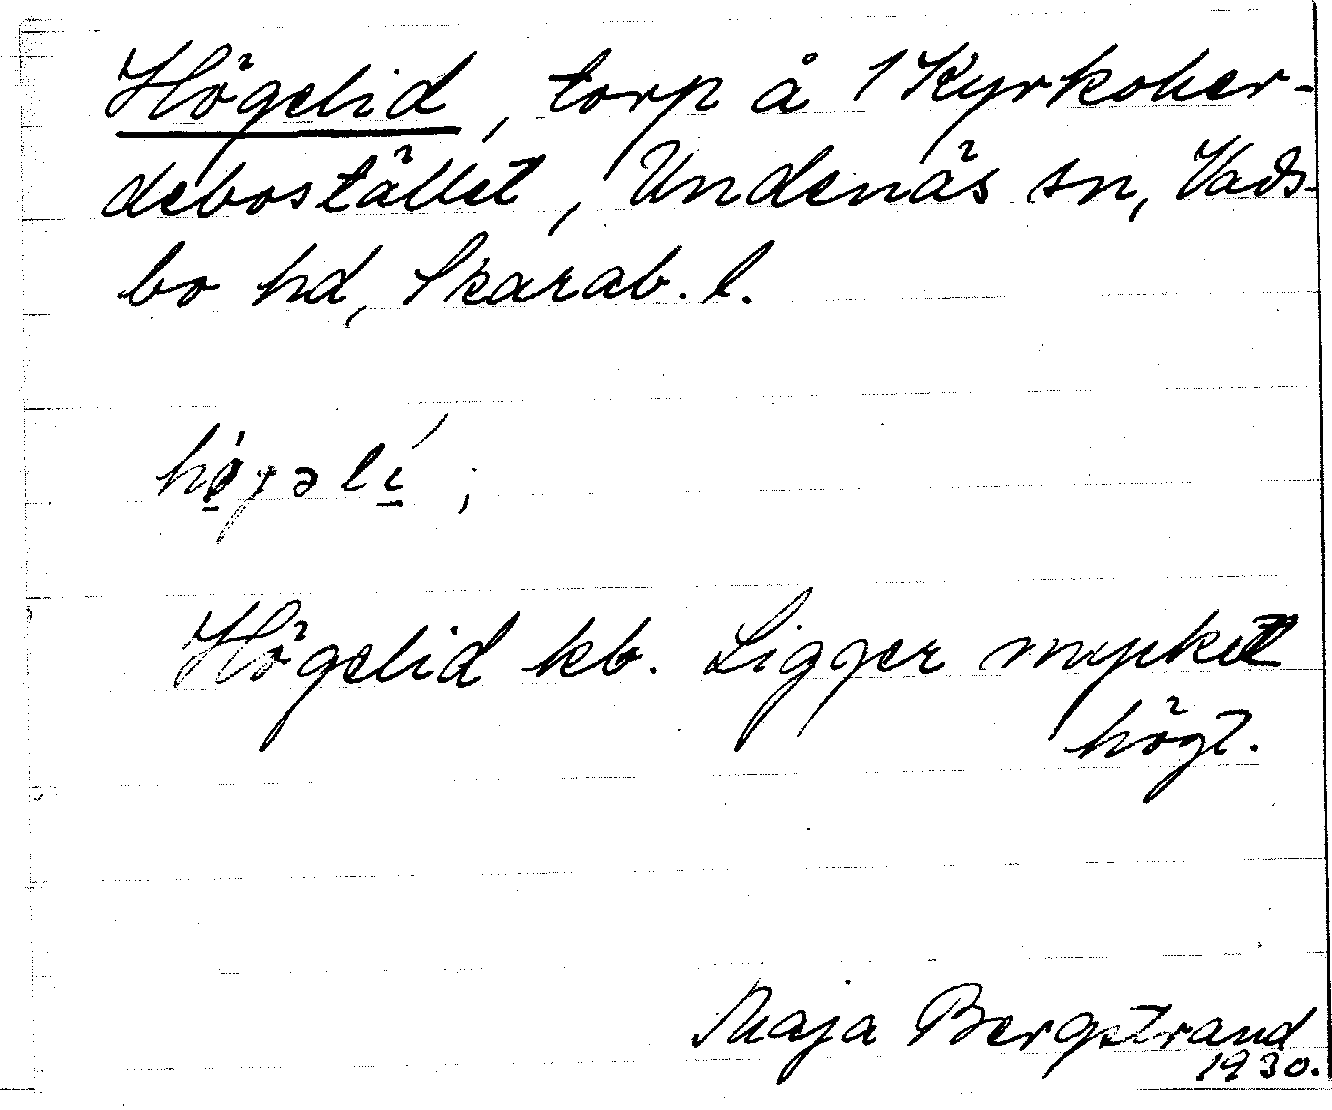 Högelid, torp å 1 Kyrkoher-
debostället, Undenäs sn, Vads-
bo hd, Skarab. l.
Högelid kb. Ligger mycket
högt.
Maja Bergstrand
1930.